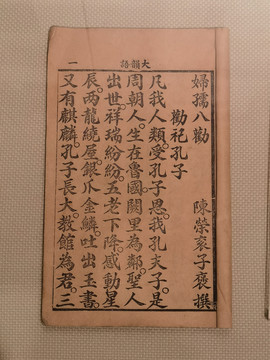 大韻語 一
婦孺八勸 陳榮袞子褒撰
勸祀孔子
凡我人類。受孔子恩。我孔夫子。是
周朝人。生在魯國。闕里為鄰。聖人
出世。祥瑞紛紛。五老下降。感動星
辰。兩龍繞屋。銀爪金鱗。吐出玉書。
又有麒麟。孔子長大。教館為君。三